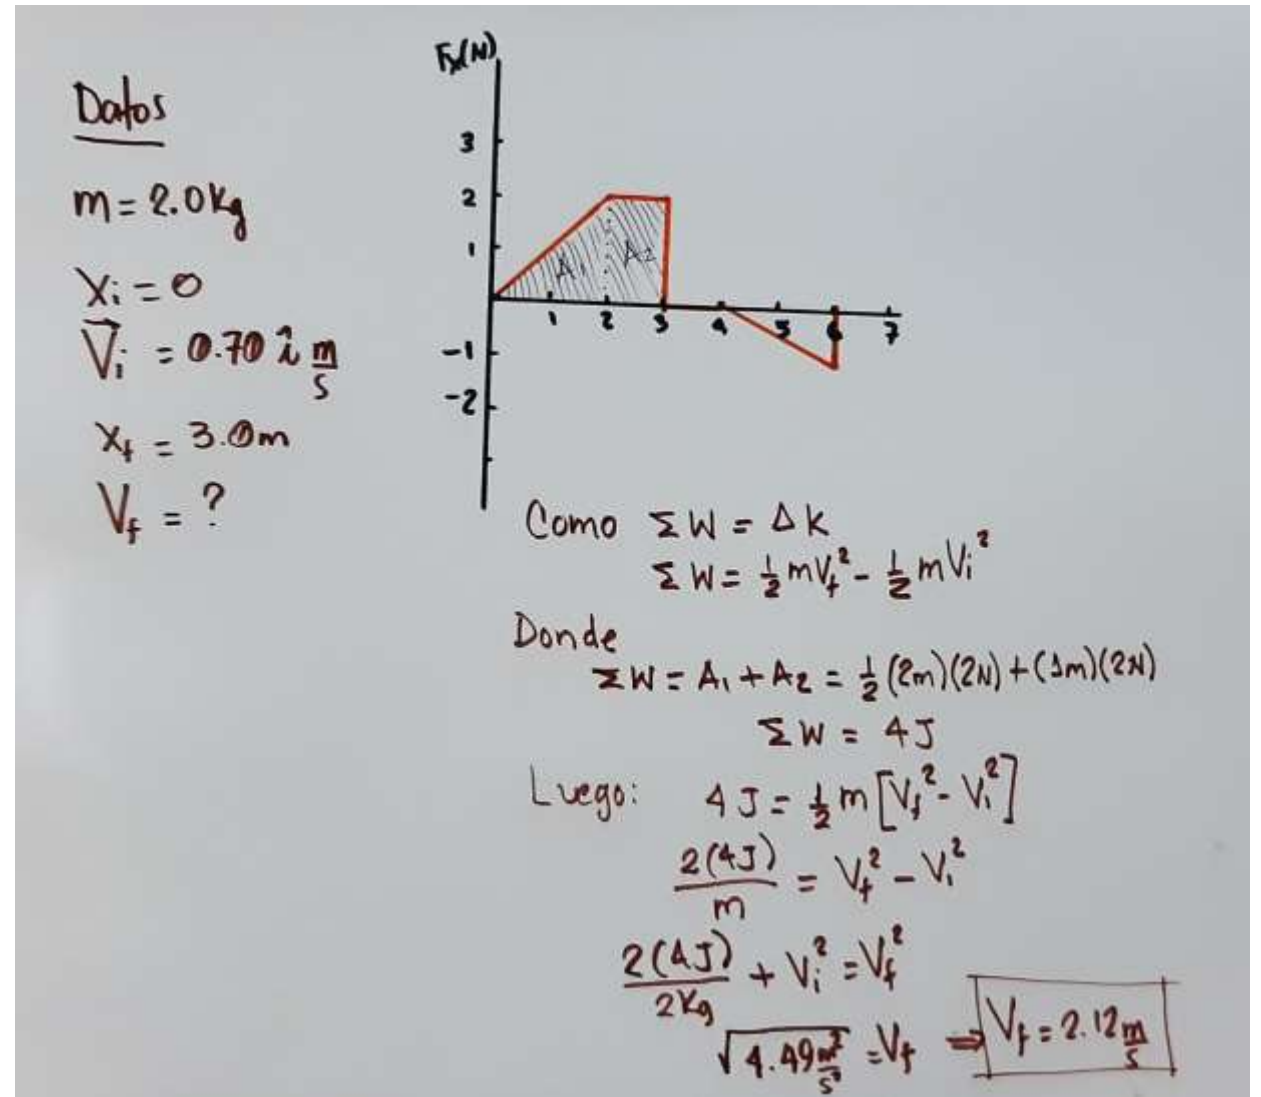 Datos
m = 2.0 kg
Xi = 0
V⃗i = 0.70 î m/s
Xf = 3.0m
Vf = ?
Fx(N)
3
2
1
-1
-2
A1 A2
1 2 3 4 5 6 7
Como Σ W = Δ K
Σ W = 1/2 mVf² - 1/2 mVi²
Donde
Σ W = A1 + A2 = 1/2 (2m)(2N) + (1m)(2N)
Σ W = 4 J
Luego: 4 J = 1/2 m [Vf² - Vi²]
2(4J)/m = Vf² - Vi²
2(4J)/2Kg + Vi² = Vf²
√4.49 m²/s² = Vf ⇒ Vf = 2.12 m/s